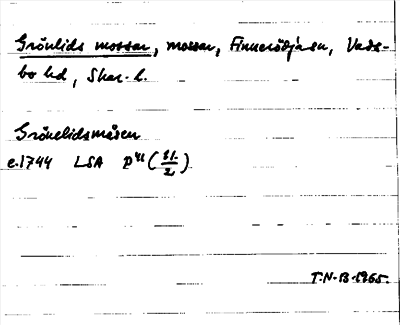 Grönlids mossar, mossar, Finnerödja sn, Vads-
bo hd, Skar. l.
Grönelidsmåsen
c. 1744 LSA P41 (31/2)
T.N-B 1965.